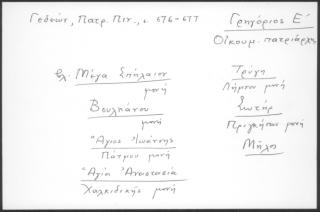 Γεδεών, Πατρ. Πιν., σ. 676-677
Γρηγόριος Ε΄
Οἰκουμ. πατριάρχης
βλ. Μέγα Σπήλαιον
μονή
Βουλκάνου
μονή
Ἅγιος Ἰωάννης
Πάτμου μονή
Ἁγία Ἀναστασία
Χαλκιδικῆς μονή
Τρυγη
Λήμνου μονή
Σωτήρ
Πριγκήπου μονή
Μῆλος